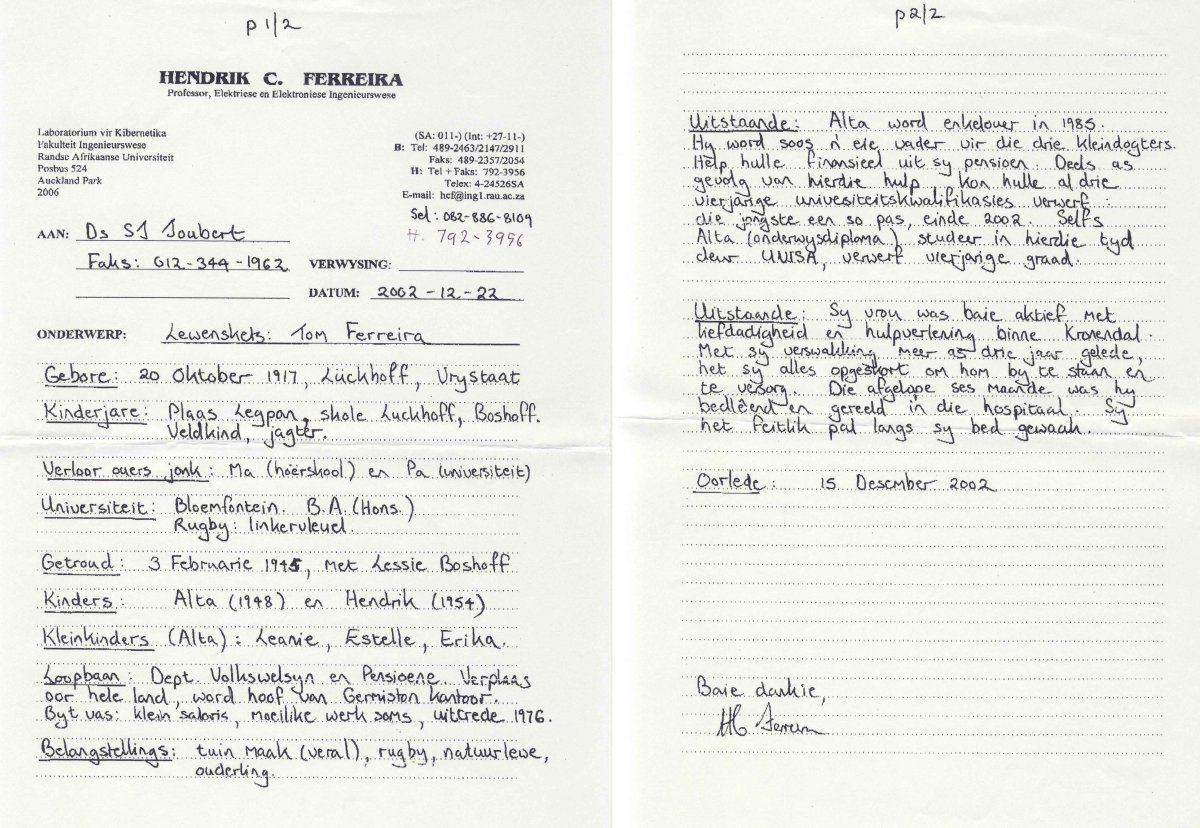 p 1/2
HENDRIK C. FERREIRA
Professor, Elektriese en Elektroniese Ingenieurswese
Laboratorium vir Kibernetika
Fakulteit Ingenieurswese
Randse Afrikaanse Universiteit
Posbus 524
Auckland Park
2006
(SA: 011-) (Int: +27-11-)
B: Tel: 489-2463/2147/2911
Faks: 489-2357/2054
H: Tel + Faks: 792-3956
Telex: 4-24526SA
E-mail: hcf@ing1.rau.ac.za
Sel: 082-886-8109
H. 792-3956
AAN: Ds SJ Joubert
Faks: 012-344-1962
VERWYSING:
DATUM: 2002-12-22
ONDERWERP: Lewenskets: Tom Ferreira
Gebore: 20 Oktober 1917, Lückhoff, Vrystaat
Kinderjare: Plaas Legpan, skole Luckhoff, Boshoff.
Veldkind, jagter.
Verloor ouers jonk: Ma (hoërskool) en Pa (universiteit)
Universiteit: Bloemfontein. B.A. (Hons.)
Rugby: linkervleuel.
Getroud: 3 Februarie 1945, met Lessie Boshoff
Kinders: Alta (1948) en Hendrik (1954)
Kleinkinders (Alta): Leanie, Estelle, Erika.
Loopbaan: Dept. Volkswelsyn en Pensioene. Verplaas
oor hele land, word hoof van Germiston kantoor.
Byt vas: klein salaris, moeilike werk soms, uitgetree 1976.
Belangstellings: tuin maak (veral), rugby, natuurlewe,
ouderling.
p 2/2
Uitstaande: Alta word enkelouer in 1985.
Hy word soos n' eie vader vir die drie kleindogters.
Help hulle finansieel uit sy pensioen. Deels as
gevolg van hierdie hulp, kon hulle al drie
vierjarige univesiteitskwalifikasies verwerf:
die jongste een so pas, einde 2002. Selfs
Alta (onderwysdiploma) studeer in hierdie tyd
deur UNISA, verwerf vierjarige graad.
Uitstaande: Sy vrou was baie aktief met
liefdadigheid en hulpverlening binne Kronendal.
Met sy verswakking meer as drie jaar gelede,
het sy alles opgeskort om hom by te staan en
te versorg. Die afgelope ses maande was hy
bedlêend en gereeld in die hospitaal. Sy
het feitlik pal langs sy bed gewaak.
Oorlede: 15 Desember 2002
Baie dankie,
HC Ferreira